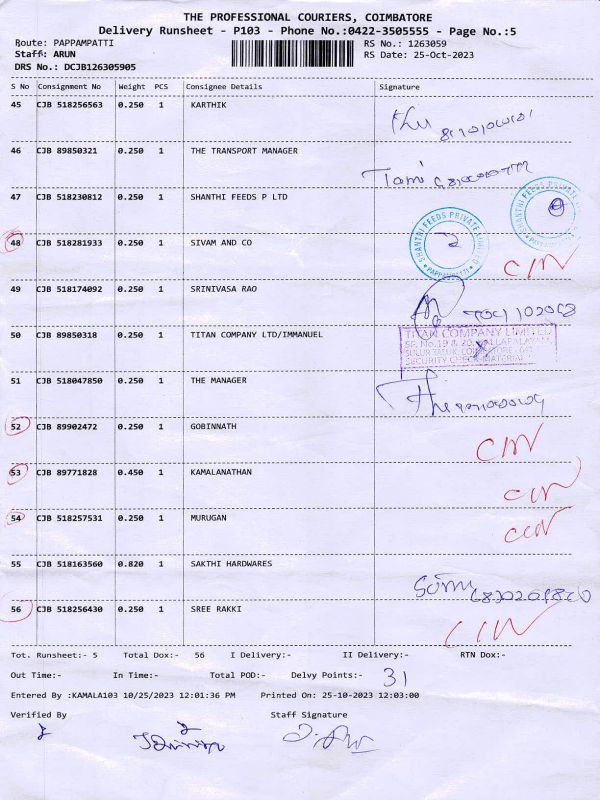 THE PROFESSIONAL COURIERS, COIMBATORE
Delivery Runsheet - P103 - Phone No.:0422-3505555 - Page No.:5
Route: PAPPAMPATTI RS No.: 1263059
Staff: ARUN RS Date: 25-Oct-2023
DRS No.: DCJB126305905
S No Consignment No Weight PCS Consignee Details Signature
45 CJB 518256563 0.250 1 KARTHIK
46 CJB 89850321 0.250 1 THE TRANSPORT MANAGER
47 CJB 518230812 0.250 1 SHANTHI FEEDS P LTD
SHANTHI FEEDS PRIVATE LIMITED
PAPPAMPATTI
SHANTHI FEEDS PRIVATE LIMITED
48 CJB 518281933 0.250 1 SIVAM AND CO
49 CJB 518174092 0.250 1 SRINIVASA RAO
50 CJB 89850318 0.250 1 TITAN COMPANY LTD/IMMANUEL
TITAN COMPANY LIMITED
SECURITY CHECK-MATERIAL
51 CJB 518047850 0.250 1 THE MANAGER
52 CJB 89902472 0.250 1 GOBINNATH
53 CJB 89771828 0.450 1 KAMALANATHAN
54 CJB 518257531 0.250 1 MURUGAN
55 CJB 518163560 0.820 1 SAKTHI HARDWARES
56 CJB 518256430 0.250 1 SREE RAKKI
Tot. Runsheet:- 5 Total Dox:- 56 I Delivery:- II Delivery:- RTN Dox:-
Out Time:- In Time:- Total POD:- Delvy Points:- 31
Entered By :KAMALA103 10/25/2023 12:01:36 PM Printed On: 25-10-2023 12:03:00
Verified By Staff Signature